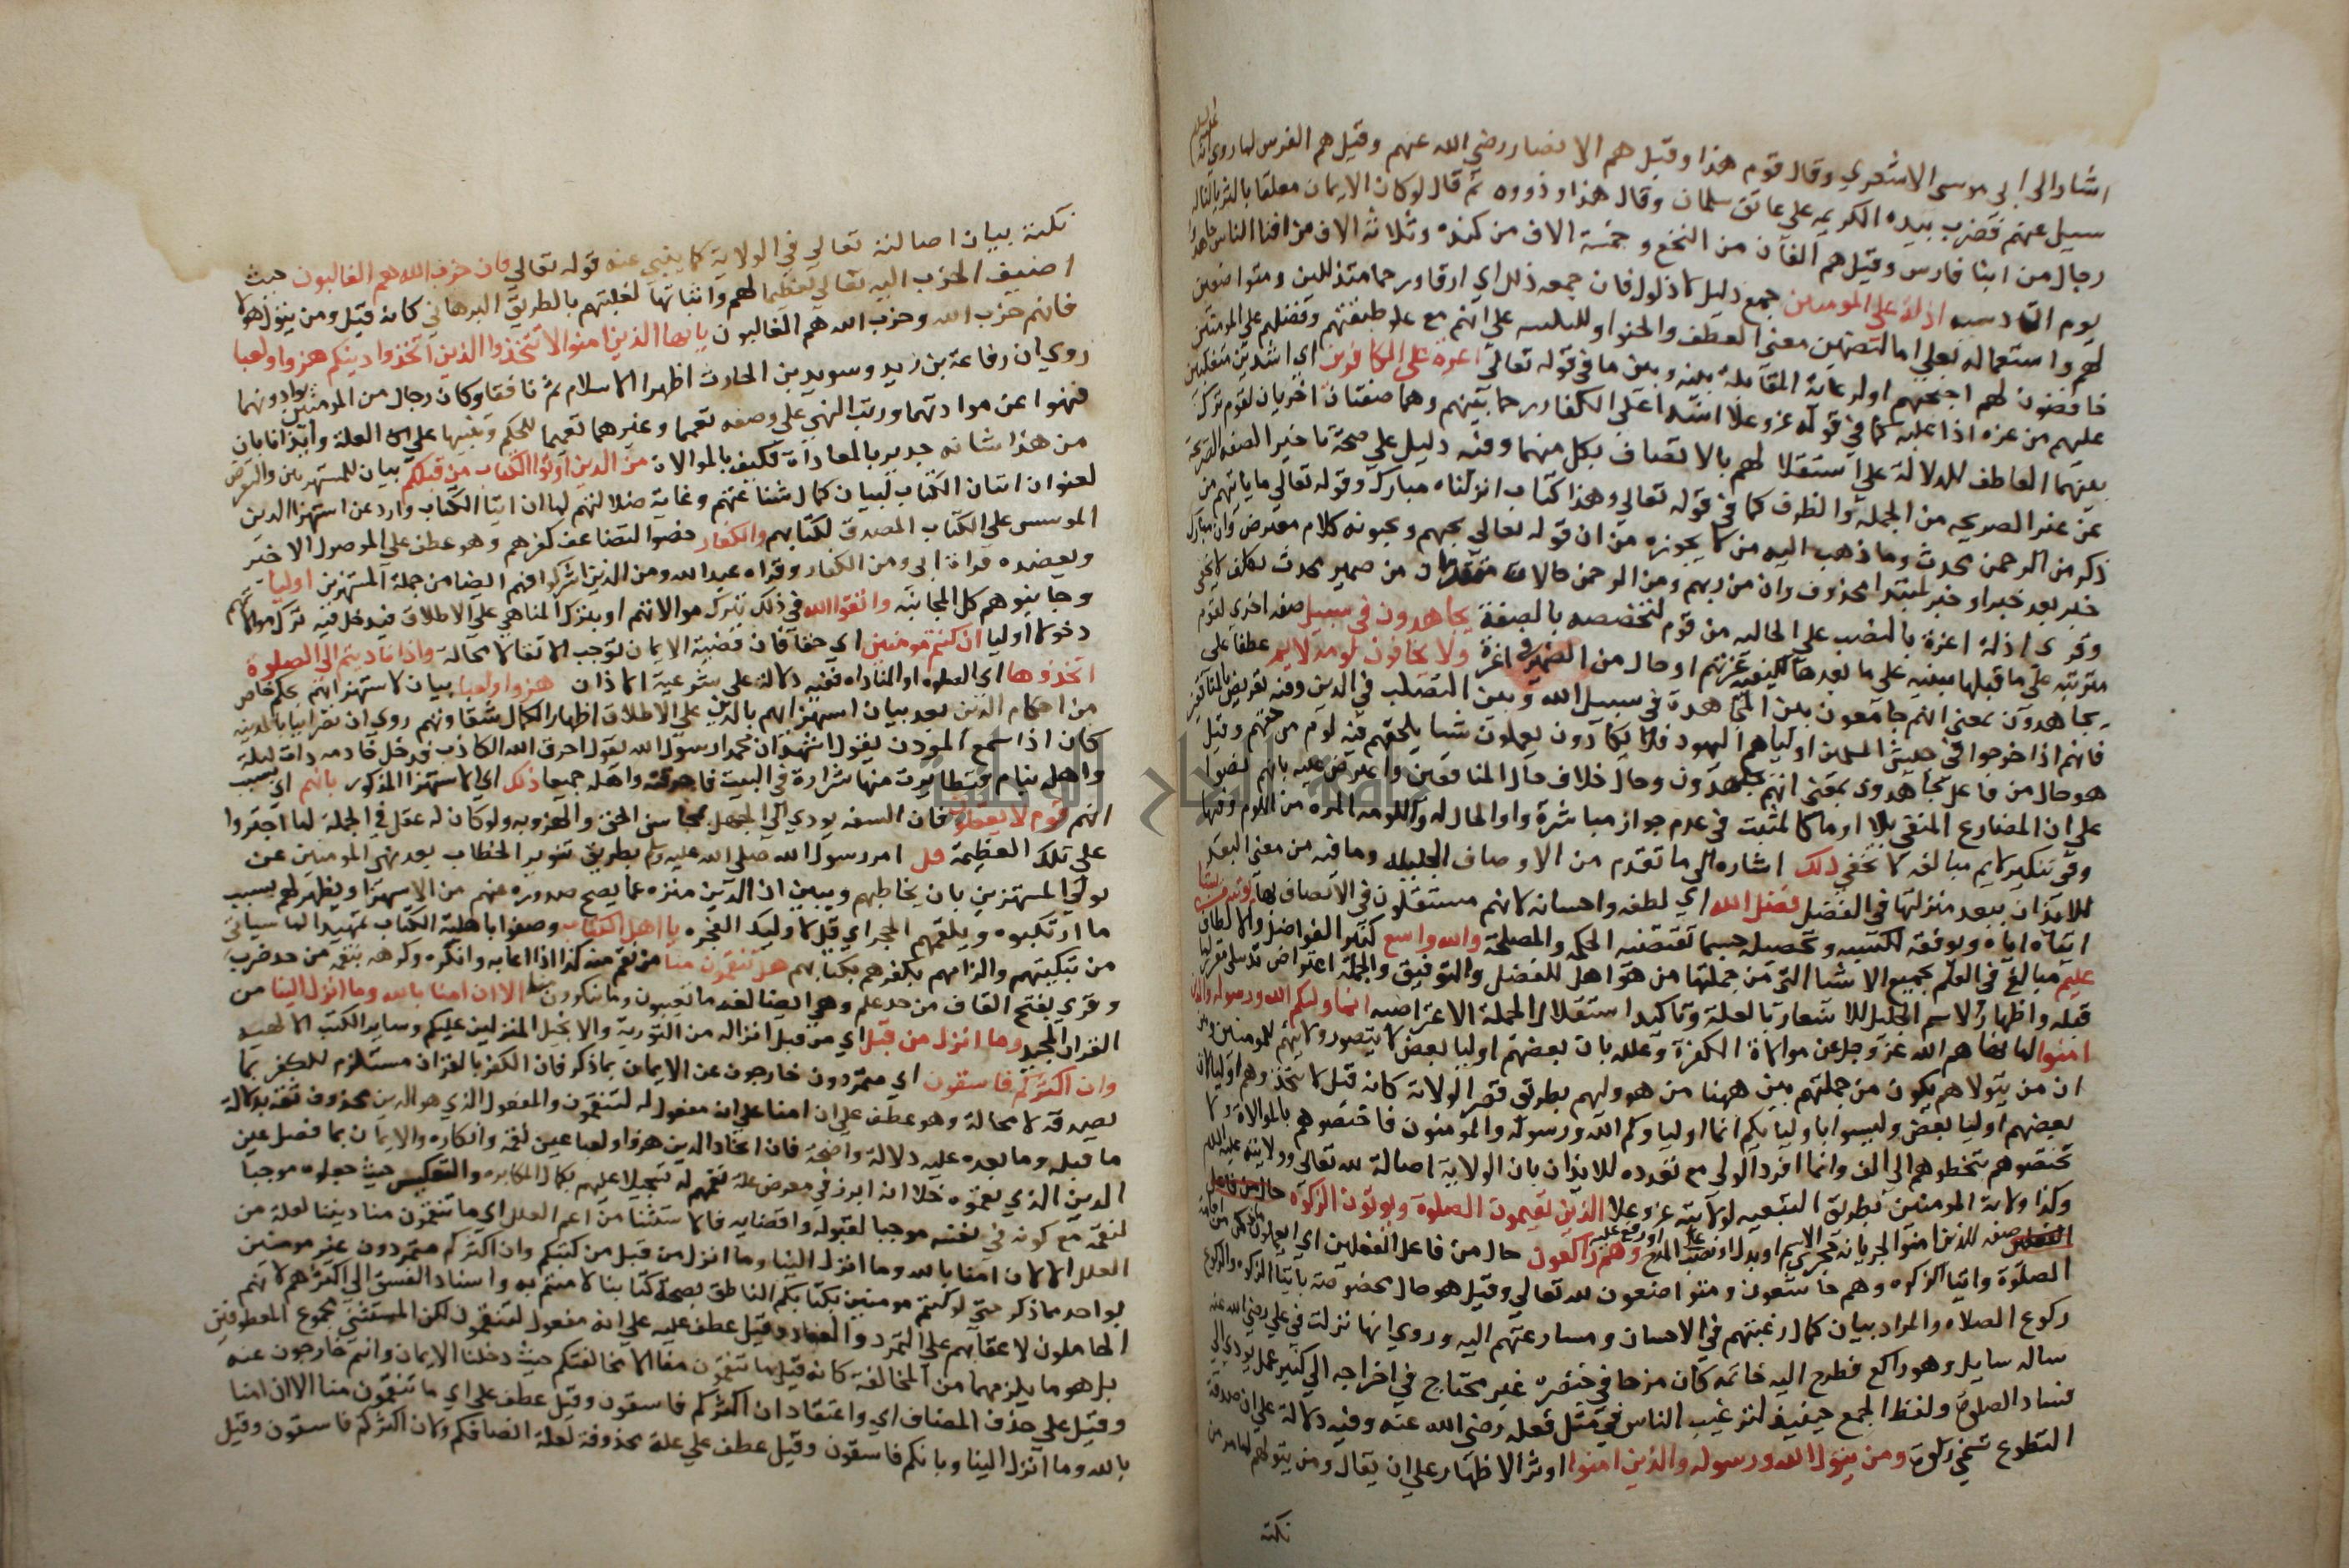 اشار الى ابى موسى الاشعري وقال قوم هذا وقيل هم الانصار رضي الله عنهم وقيل هم الفرس لما روي انه
عليه السلام
سيل عنهم فضرب بيده الكريمه على عاتق سلمان وقال هذا وذووه ثم قال لو كان الايمان معلقا بالثريا لناله
رجال من ابنا فارس وقيل هم الفان من النخع وخمسة الاف من كنده وثلاثة الاف من افنا الناس جاهدوا
يوم القادسيه اذلة على المومنين جمع ذليل لا ذلول فان جمعه ذلل اي ارقا رحما متذللين ومتواضعين
لهم واستعماله بعلى اما لتضمين معنى العطف والحنو او للتنبيه على انهم مع علو طبقتهم وفضلهم على المومنين
خافضون لهم اجنحتهم او لرعاية المقابلة بينه وبين ما في قوله تعالى اعزة على الكافرين اي اشدا متغلبين
عليهم من عزه اذا غلبه كما في قوله عز وعلا اشدا على الكفار رحما بينهم وهما صفتان اخريان لقوم ترك
بينهما العاطف للدلالة على استقلالهم بالاتصاف بكل منهما وفيه دليل على صحة تاخير الصفه الصريحة
عن غير الصريحه من الجملة والظرف كما في قوله تعالى وهذا كتاب انزلناه مبارك وقوله تعالى ما ياتيهم من
ذكر من الرحمن محدث وما ذهب اليه من لا يجوزه من ان قوله تعالى يحبهم ويحبونه كلام معترض وان مبارك
خبر بعد خبر او خبر لمبتدا محذوف وان من ربهم ومن الرحمن حالان مقدمتان من ضمير محدث تكلف لا يخفى
وقرى اذلة اعزة بالنصب على الحاليه من قوم لتخصصه بالصفة يجاهدون في سبيل الله صفه اخرى لقوم
مترتبه على ما قبلها مبينه مع ما بعدها لكيفية عزتهم او حال من الضمير في اعزة ولا يخافون لومة لايم عطف على
يجاهدون بمعنى انهم جامعون بين المجاهدة في سبيل الله وبين التصلب في الدين وفيه تعريض بالمنافقين
فانهم اذا خرجوا في جيش المسلمين خافوا اولياهم اليهود فلا يكادون يعملون شيا يلحقهم فيه لوم من جهتهم وقيل
هو حال من فاعل يجاهدون بمعنى انهم يجاهدون وحالهم خلاف حال المنافقين واعترض عليه بانهم نصوا
على ان المضارع المنفي بلا او ما كالمثبت في عدم جواز مباشرة واو الحال له واللومه المره من اللوم وفيها
وفي تنكير لايم مبالغه لا تخفى ذلك اشاره الى ما تقدم من الاوصاف الجليله وما فيه من معنى البعد
للايذان ببعد منزلتها في الفضل فضل الله اي لطفه واحسانه لا انهم مستقلون في الاتصاف بها يوتيه من يشا
ايتاه اياه ويوفقه لكسبه وتحصيله حسبما تقتضيه الحكمه والمصلحة والله واسع كثير الفواضل والالطاف
عليم مبالغ في العلم بجميع الاشيا التي من جملتها من هو اهل للفضل والتوفيق والجملة اعتراض تذييلي مقرر لما
قبله واظهار الاسم الجليل للاشعار بالعلة وتاكيد استقلال الجملة الاعتراضيه انما وليكم الله ورسوله والذين
امنوا لما نهاهم الله عز وجل عن موالاة الكفرة وعلله بان بعضهم اوليا بعض لا يتصور ولايتهم للمومنين وبين
ان من يتولاهم يكون من جملتهم بين ههنا من هو وليهم بطريق قصر الولاية كانه قيل لا تتخذوهم اوليا لان
بعضهم اوليا بعض وليسوا باولياكم انما اولياوكم الله ورسوله والمومنون فاختصوهم بالموالاة ولا
تخصوهم تتخطوهم الى الغير وانما افرد الولي مع تعدده للايذان بان الولاية اصالة لله تعالى وولايته عليه السلم
وكذا ولاية المومنين بطريق التبعيه لولايته عز وعلا الذين يقيمون الصلوة ويوتون الزكوة
صفه للذين امنوا لجريانه مجرى الاسم او بدل او نصب على المدح او رفع عليه وهم راكعون حال من فاعل الفعلين اي يعملون ما ذكر من اقامة
الصلوة وايتا الزكوه وهم خاشعون ومتواضعون لله تعالى وقيل هو حال مخصوصة بايتا الزكوه والركوع
ركوع الصلاه والمراد بيان كمال رغبتهم في الاحسان ومسارعتهم اليه وروي انها نزلت في علي رضي الله عنه
ساله سايل وهو راكع فطرح اليه خاتمه كان مرجا في خنصره غير محتاج في اخراجه الى كثير عمل يودي الى
فساد الصلوة ولفظ الجمع حينيذ لترغيب الناس في مثل فعله رضي الله عنه وفيه دلالة على ان صدقة
التطوع تسمى زكوة ومن يتول الله ورسوله والذين امنوا اوثر الاظهار على ان يقال ومن يتولهم لما مر من
نكتة
نكتة بيان اصالته تعالى في الولاية كما ينبي عنه قوله تعالى فان حزب الله هم الغالبون حيث
اضيف الحزب اليه تعالى تعظيما لهم واثباتا لغلبتهم بالطريق البرهاني كانه قيل ومن يتول هولا
فانهم حزب الله وحزب الله هم الغالبون يا ايها الذين امنوا لا تتخذوا الذين اتخذوا دينكم هزوا ولعبا
روي ان رفاعة بن زيد وسويد بن الحارث اظهرا الاسلام ثم نافقا وكان رجال من المومنين يوادونهما
فنهوا عن موادتهما ورتب النهي على وصفه تعمهما وغيرهما تعميما للحكم وتنبيها على العلة وايذانا بان
من هذا شانه جدير بالمعاداة فكيف بالموالاة من الذين اوتوا الكتاب من قبلكم بيان للمستهزين والتعرض
لعنوان ايتان الكتاب لبيان كمال شناعتهم وغاية ضلالتهم لما ان ايتا الكتاب وازع عن استهزا الدين
الموسس على الكتاب المصدق لكتابهم والكفار خصوا لتضاعف كفرهم وهو عطف على الموصول الاخير
ويعضده قراة ابي ومن الكفار وقراه عبد الله ومن الذين اشركوا فهم ايضا من جملة المستهزين اوليا
وجانبوهم كل المجانبه واتقوا الله في ذلك بترك موالاتهم او بترك المناهي على الاطلاق فيدخل فيه ترك موالاتهم
دخولا اوليا ان كنتم مومنين اي حقا فان قضية الايمان توجب الاتقا لا محالة واذا ناديتم الى الصلوة
اتخذوها اي الصلوه او المناداه ففيه دلالة على شرعية الاذان هزوا ولعبا بيان لاستهزايهم بحكم خاص
من احكام الدين بعد بيان استهزايهم بالدين على الاطلاق اظهارا لكمال شقاوتهم روي ان نصرانيا بالمدينه
كان اذا سمع الموذن يقول اشهد ان محمدا رسول الله يقول احرق الله الكاذب فدخل خادمه ذات ليلة
واهله نيام فتطايرت منها شرارة في البيت فاحرقته واهله جميعا ذلك اي الاستهزا المذكور بانهم اي بسبب
انهم قوم لا يعقلون فان السفه يودي الى الجهل بمحاسن الحق والهزو به ولو كان له عقل في الجملة لما اجتروا
على تلك العظيمة قل امر رسول الله صلى الله عليه وسلم بطريق تلوين الخطاب بعد نهي المومنين عن
تولي المستهزين بان يخاطبهم ويبين ان الدين منزه عما يصح صدوره عنهم من الاستهزا ويظهر لهم بسبب
ما ارتكبوه ويلقمهم الحجر اي قل لاوليك الفجره يا اهل الكتاب وصفوا باهلية الكتاب تمهيدا لما سياتي
من تبكيتهم والزامهم بكفرهم بكتابهم هل تنقمون منا من نقم منه كذا اذا عابه وانكره وكرهه ينقم من حد ضرب
وقري بفتح القاف من حد علم وهي ايضا لغه ما تعيبون وما تنكرون منا الا ان امنا بالله وما انزل الينا من
القران المجيد وما انزل من قبل اي من قبل انزاله من التورية والانجيل المنزلين عليكم وساير الكتب الالهيه
وان اكثركم فاسقون اي متمردون خارجون عن الايمان بما ذكر فان الكفر بالقران مستلزم للكفر بما
يصدقه لا محالة وهو عطف على ان امنا على انه مفعول له لتنقمون والمفعول الذي هو الدين محذوف ثقة بدلالة
ما قبله وما بعده عليه دلالة واضحة فان اتخاذ الدين هزوا ولعبا عين نقمه وانكاره والايمان بما فصل عين
الدين الذي نقموه خلا انه ابرز في معرض علة نقمهم له تسجيلا عليهم بكمال المكابره والتعكيس حيث جعلوه موجبا
لنقمه مع كونه في نفسه موجبا لقبوله وارتضايه فالاستثنا من اعم العلل اي ما تنقمون منا ديننا لعلة من
العلل الا لان امنا بالله وما انزل الينا وما انزل من قبل من كتبكم وان اكثركم متمردون غير مومنين
بواحد مما ذكر حتى لو كنتم مومنين بكتابكم الناطق بصحة كتابنا لامنتم به واسناد الفسق الى اكثرهم لانهم
الحاملون لاعقابهم على التمرد والعناد وقيل عطف عليه على انه مفعول لتنقمون لكن المستثنى مجموع المعطوفين
بل هو ما يلزمهما من المخالفة كانه قيل ما تنقمون منا الا مخالفتكم حيث دخلنا الايمان وانتم خارجون عنه
وقيل على حذف المضاف اي واعتقاد ان اكثركم فاسقون وقيل عطف على اي ما تنقمون منا الا ان امنا
بالله وما انزل الينا وبانكم فاسقون وقيل عطف على علة محذوفة لقلة انصافكم ولان اكثركم فاسقون وقيل